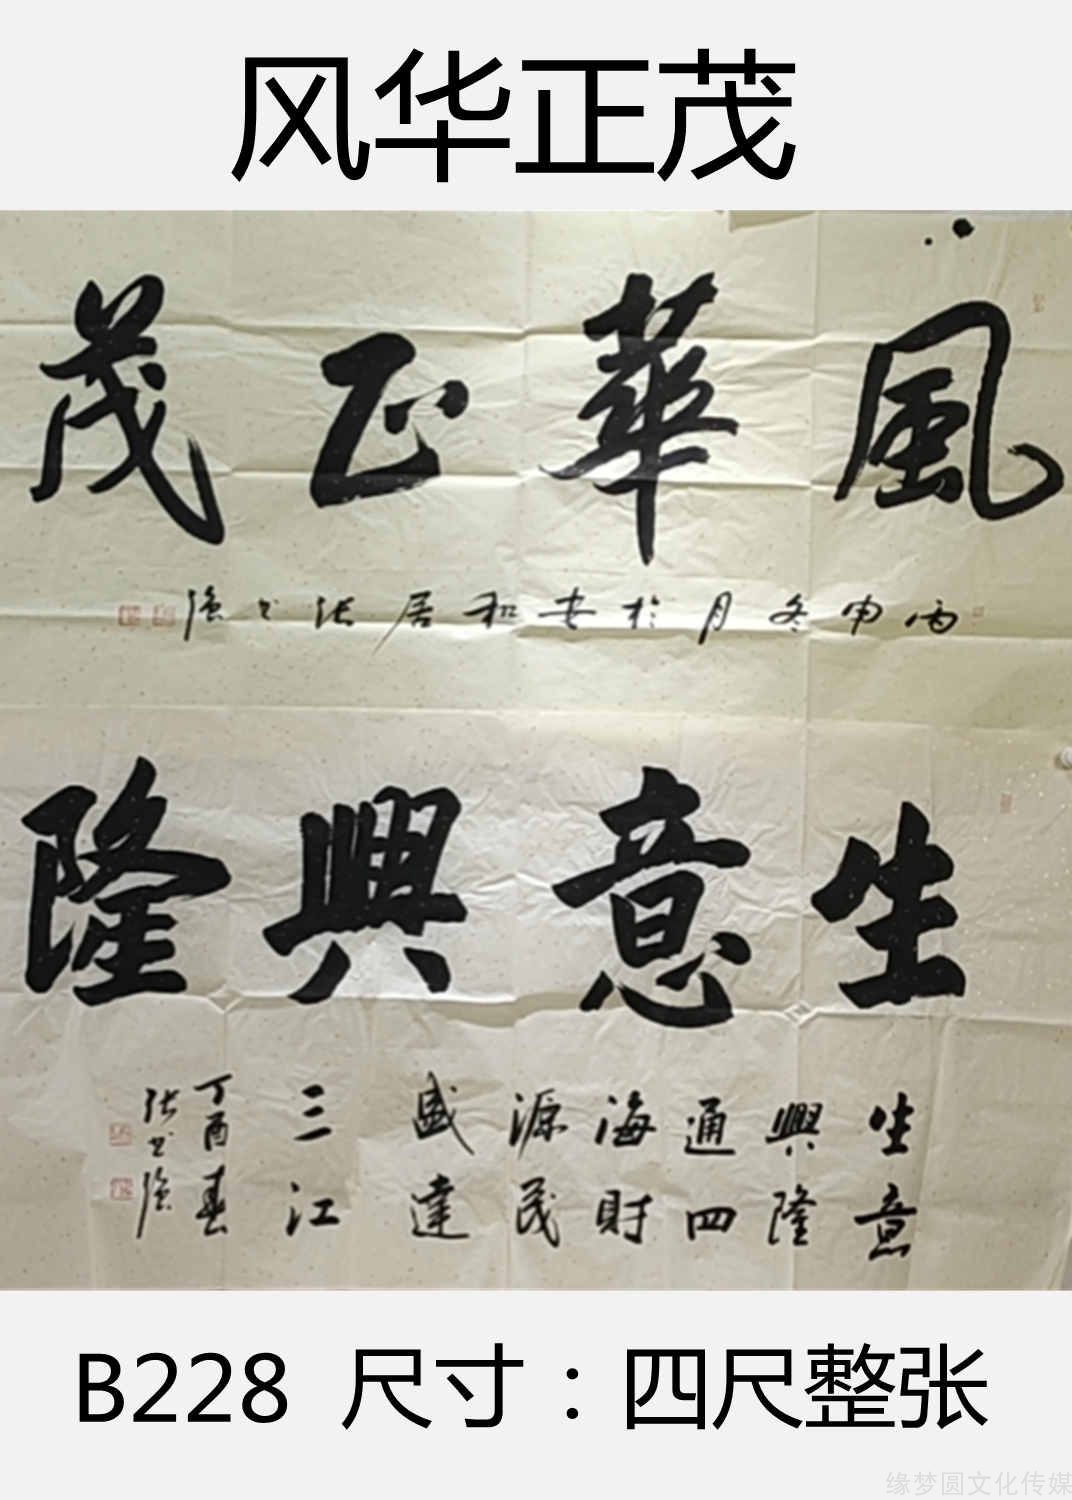 风华正茂
風華正茂
丙申冬月於安和居
生意興隆
生意
興隆
通四
海財
源茂
盛達
三江
丁酉春
B228 尺寸：四尺整张
缘梦圆文化传媒